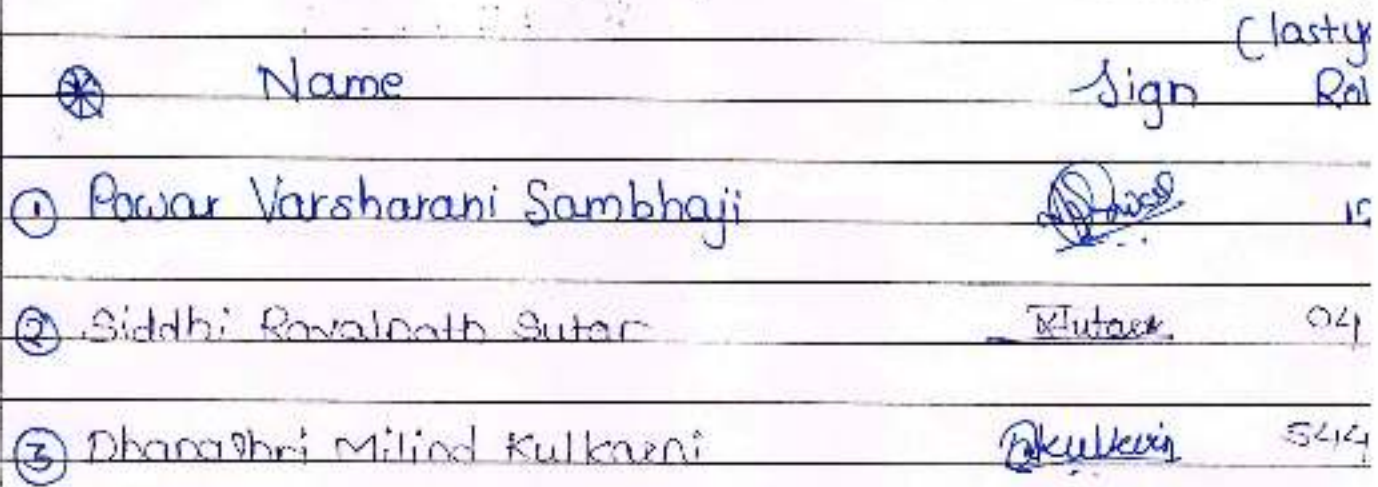 (lasty
Name Sign Rol
① Powar Varsharani Sambhaji
② Siddhi Ravalnath Sutar 04
③ Dhanashri Milind Kulkarni 544